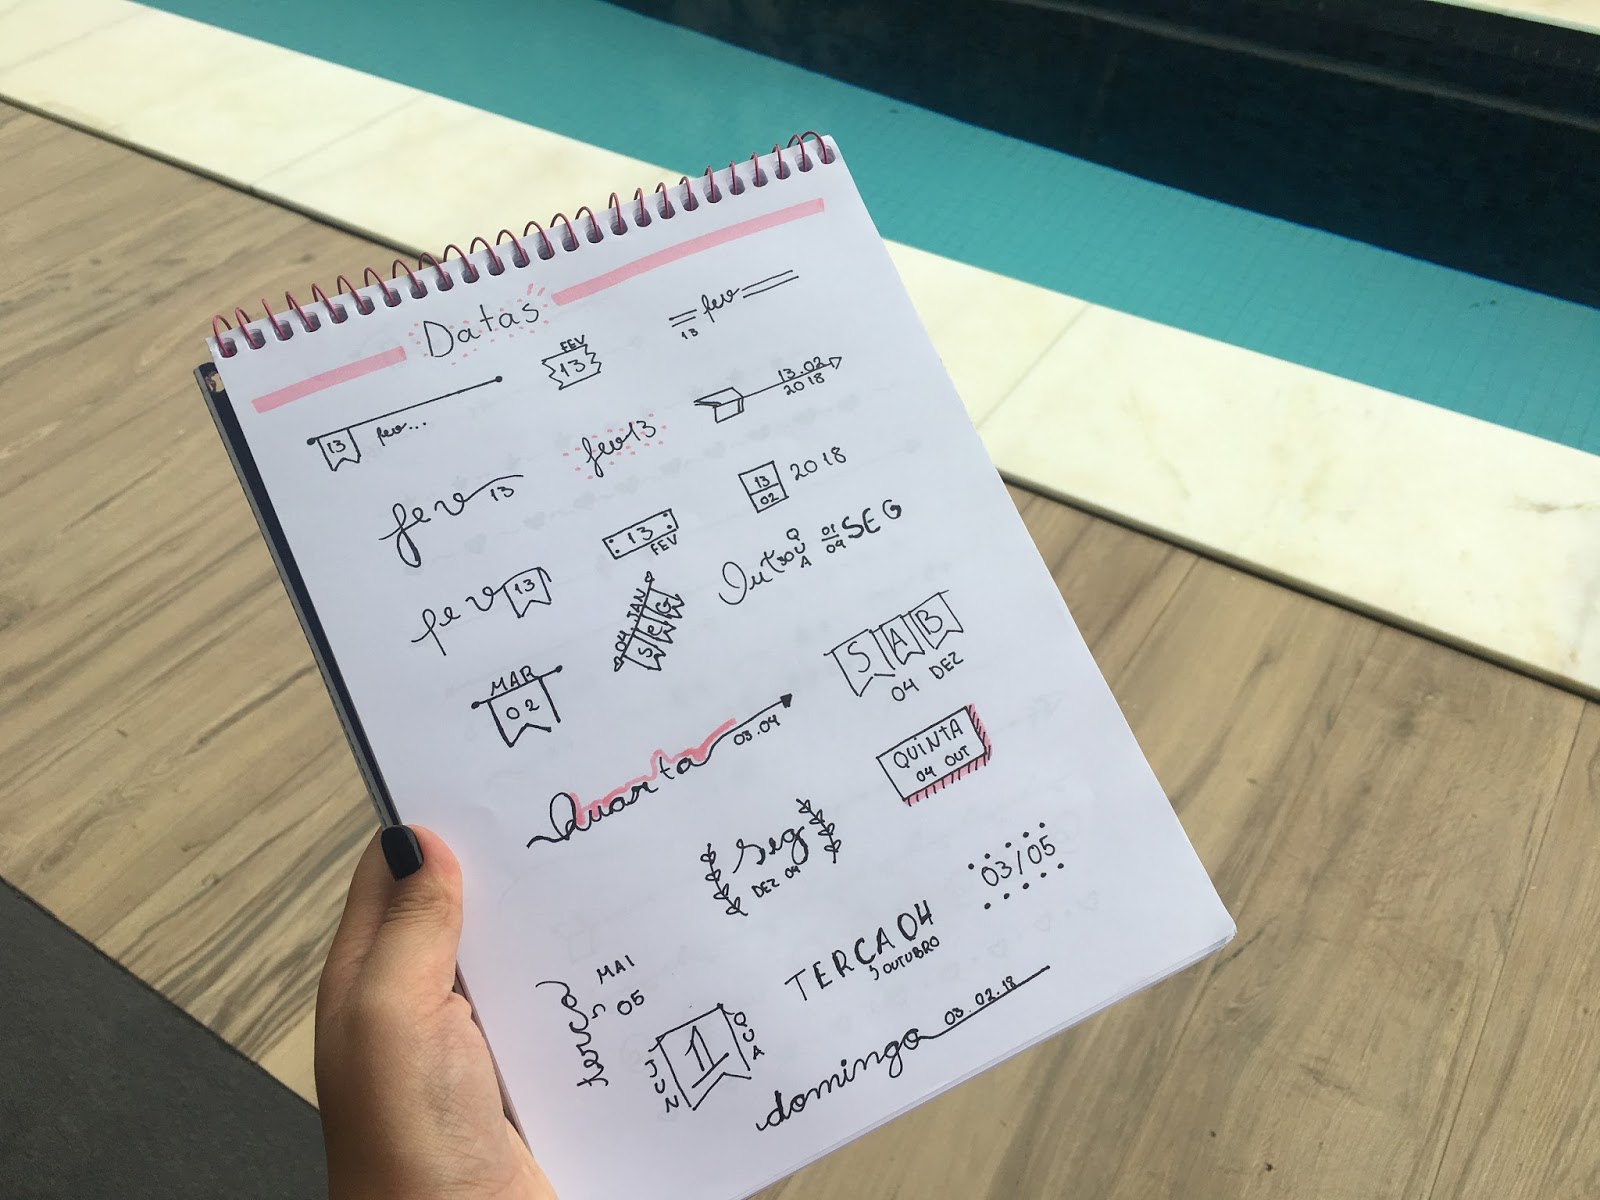 Datas
13 fev...
FEV
13
fev
13
fev 13
fev13
13.02
2018
fev 13
13
FEV
13
02
2018
Out 30 QUA
01
09
SEG
MAR
02
04 JAN
SEG
SAB
04 DEZ
Quarta 03.04
QUINTA
04 OUT
Seg
DEZ 04
03/05
TERÇA 04
OUTUBRO
terça
MAI
05
JUN
1
QUA
domingo 03.02.18